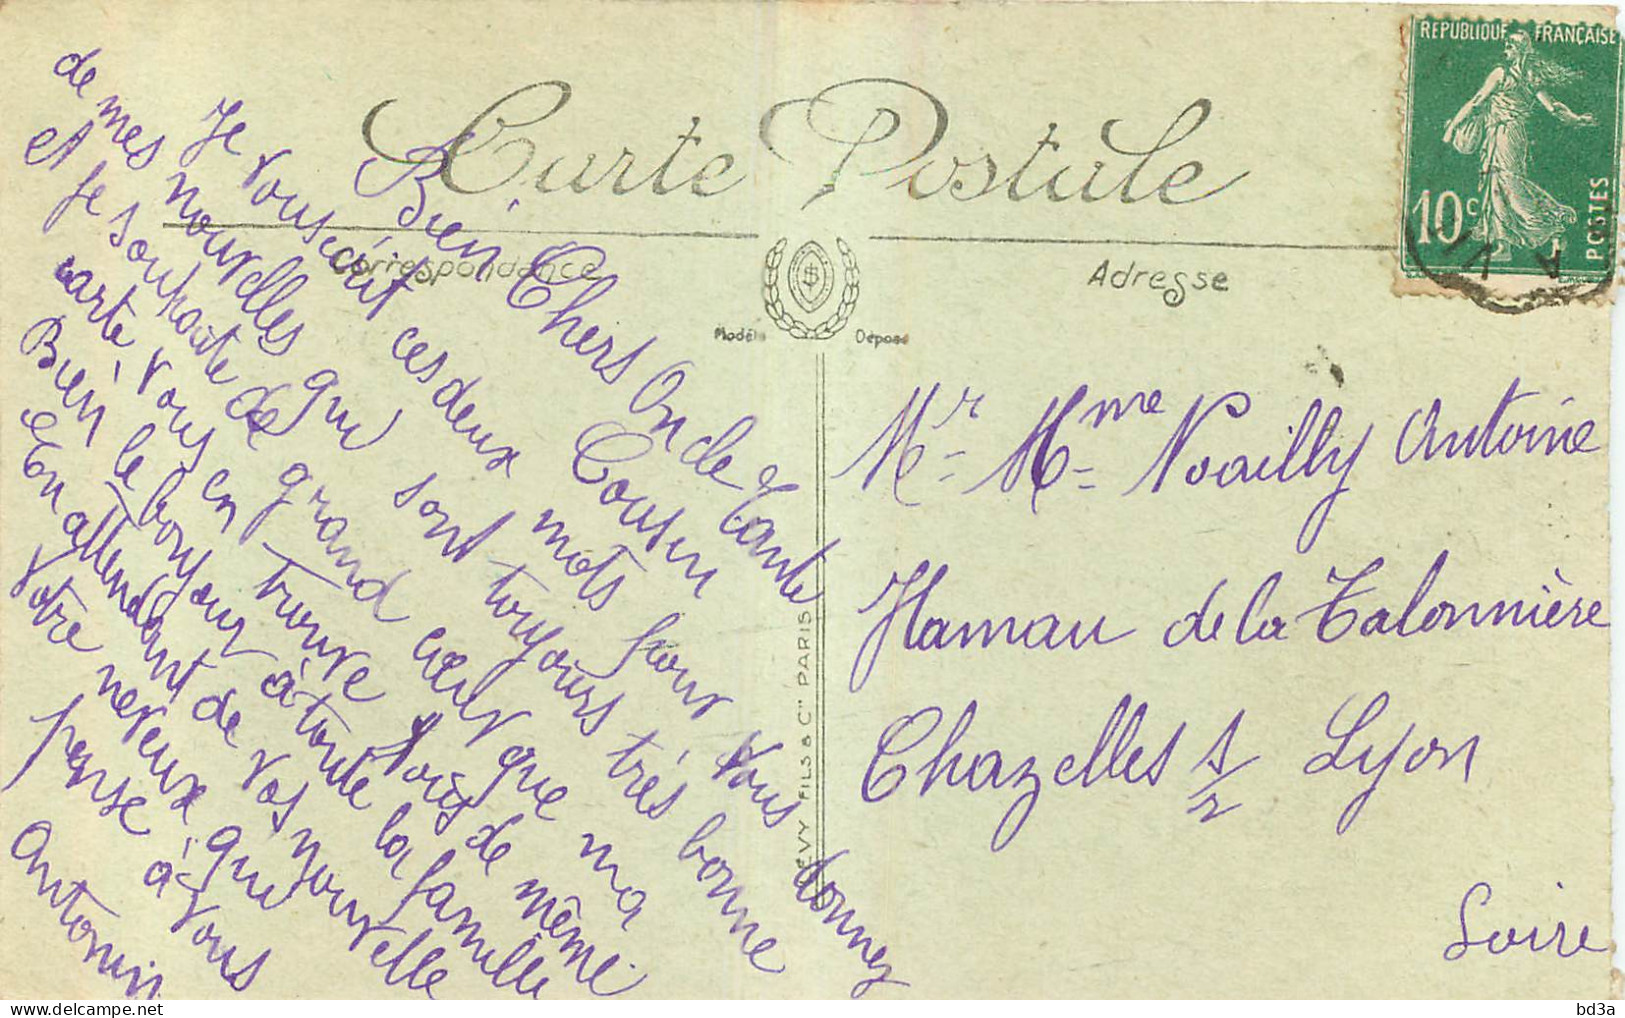 Carte Postale
Correspondance
Adresse
Modèle Déposé
LEVY FILS & Cie PARIS
REPUBLIQUE FRANÇAISE
10c
POSTES
Bien Chers Oncle Tante
Cousin
Je vous écrit ces deux mots pour vous donnez
de mes nouvelles qui sont toujours très bonne
et je souhaite de grand cœur que ma
carte vous en trouve vous de même
Bien le bonjour à toute la famille
En attendant de vos nouvelle
Votre neveux qui
pense à vous
Antonin
Mr Mme Noailly Antoine
Hamau de la Talonnière
Chazelles s/ Lyon
Loire
bd3a